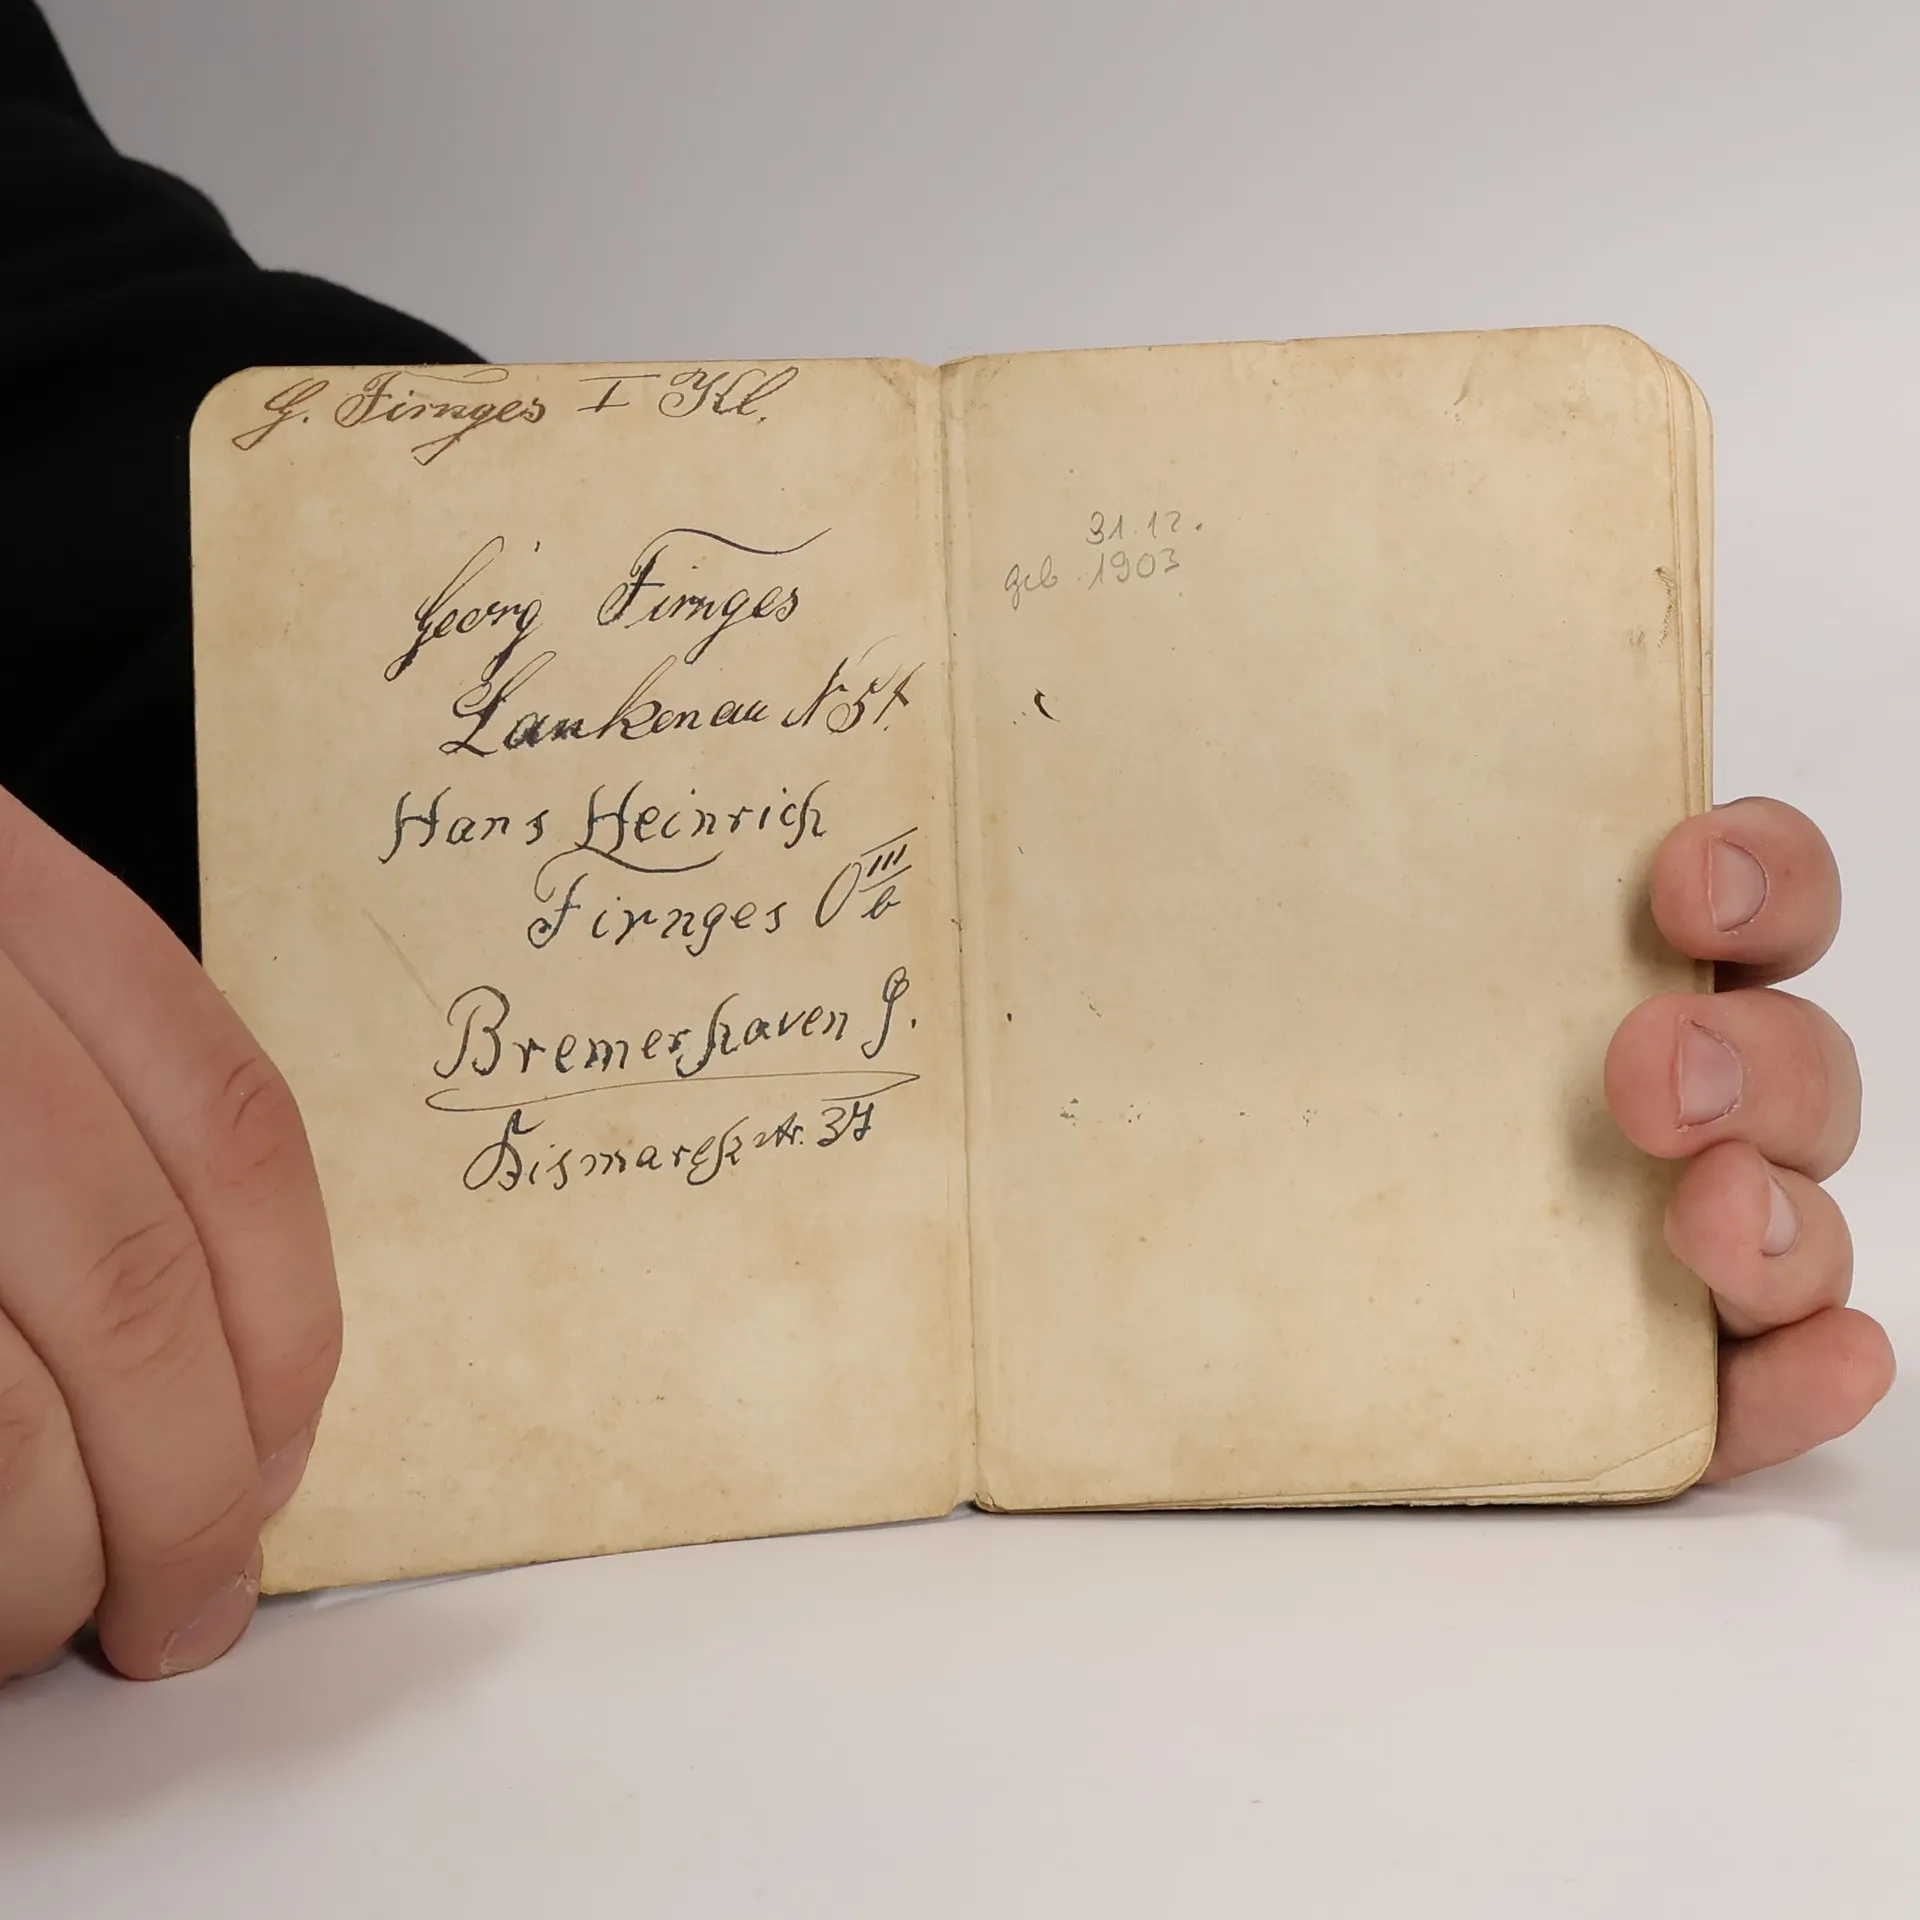 G. Firnges I Kl.
Georg Firnges
Lankenau N 51.
Hans Heinrich
Firnges O III b
Bremerhaven G.
Bismarckstr. 37
31.12.
geb. 1903